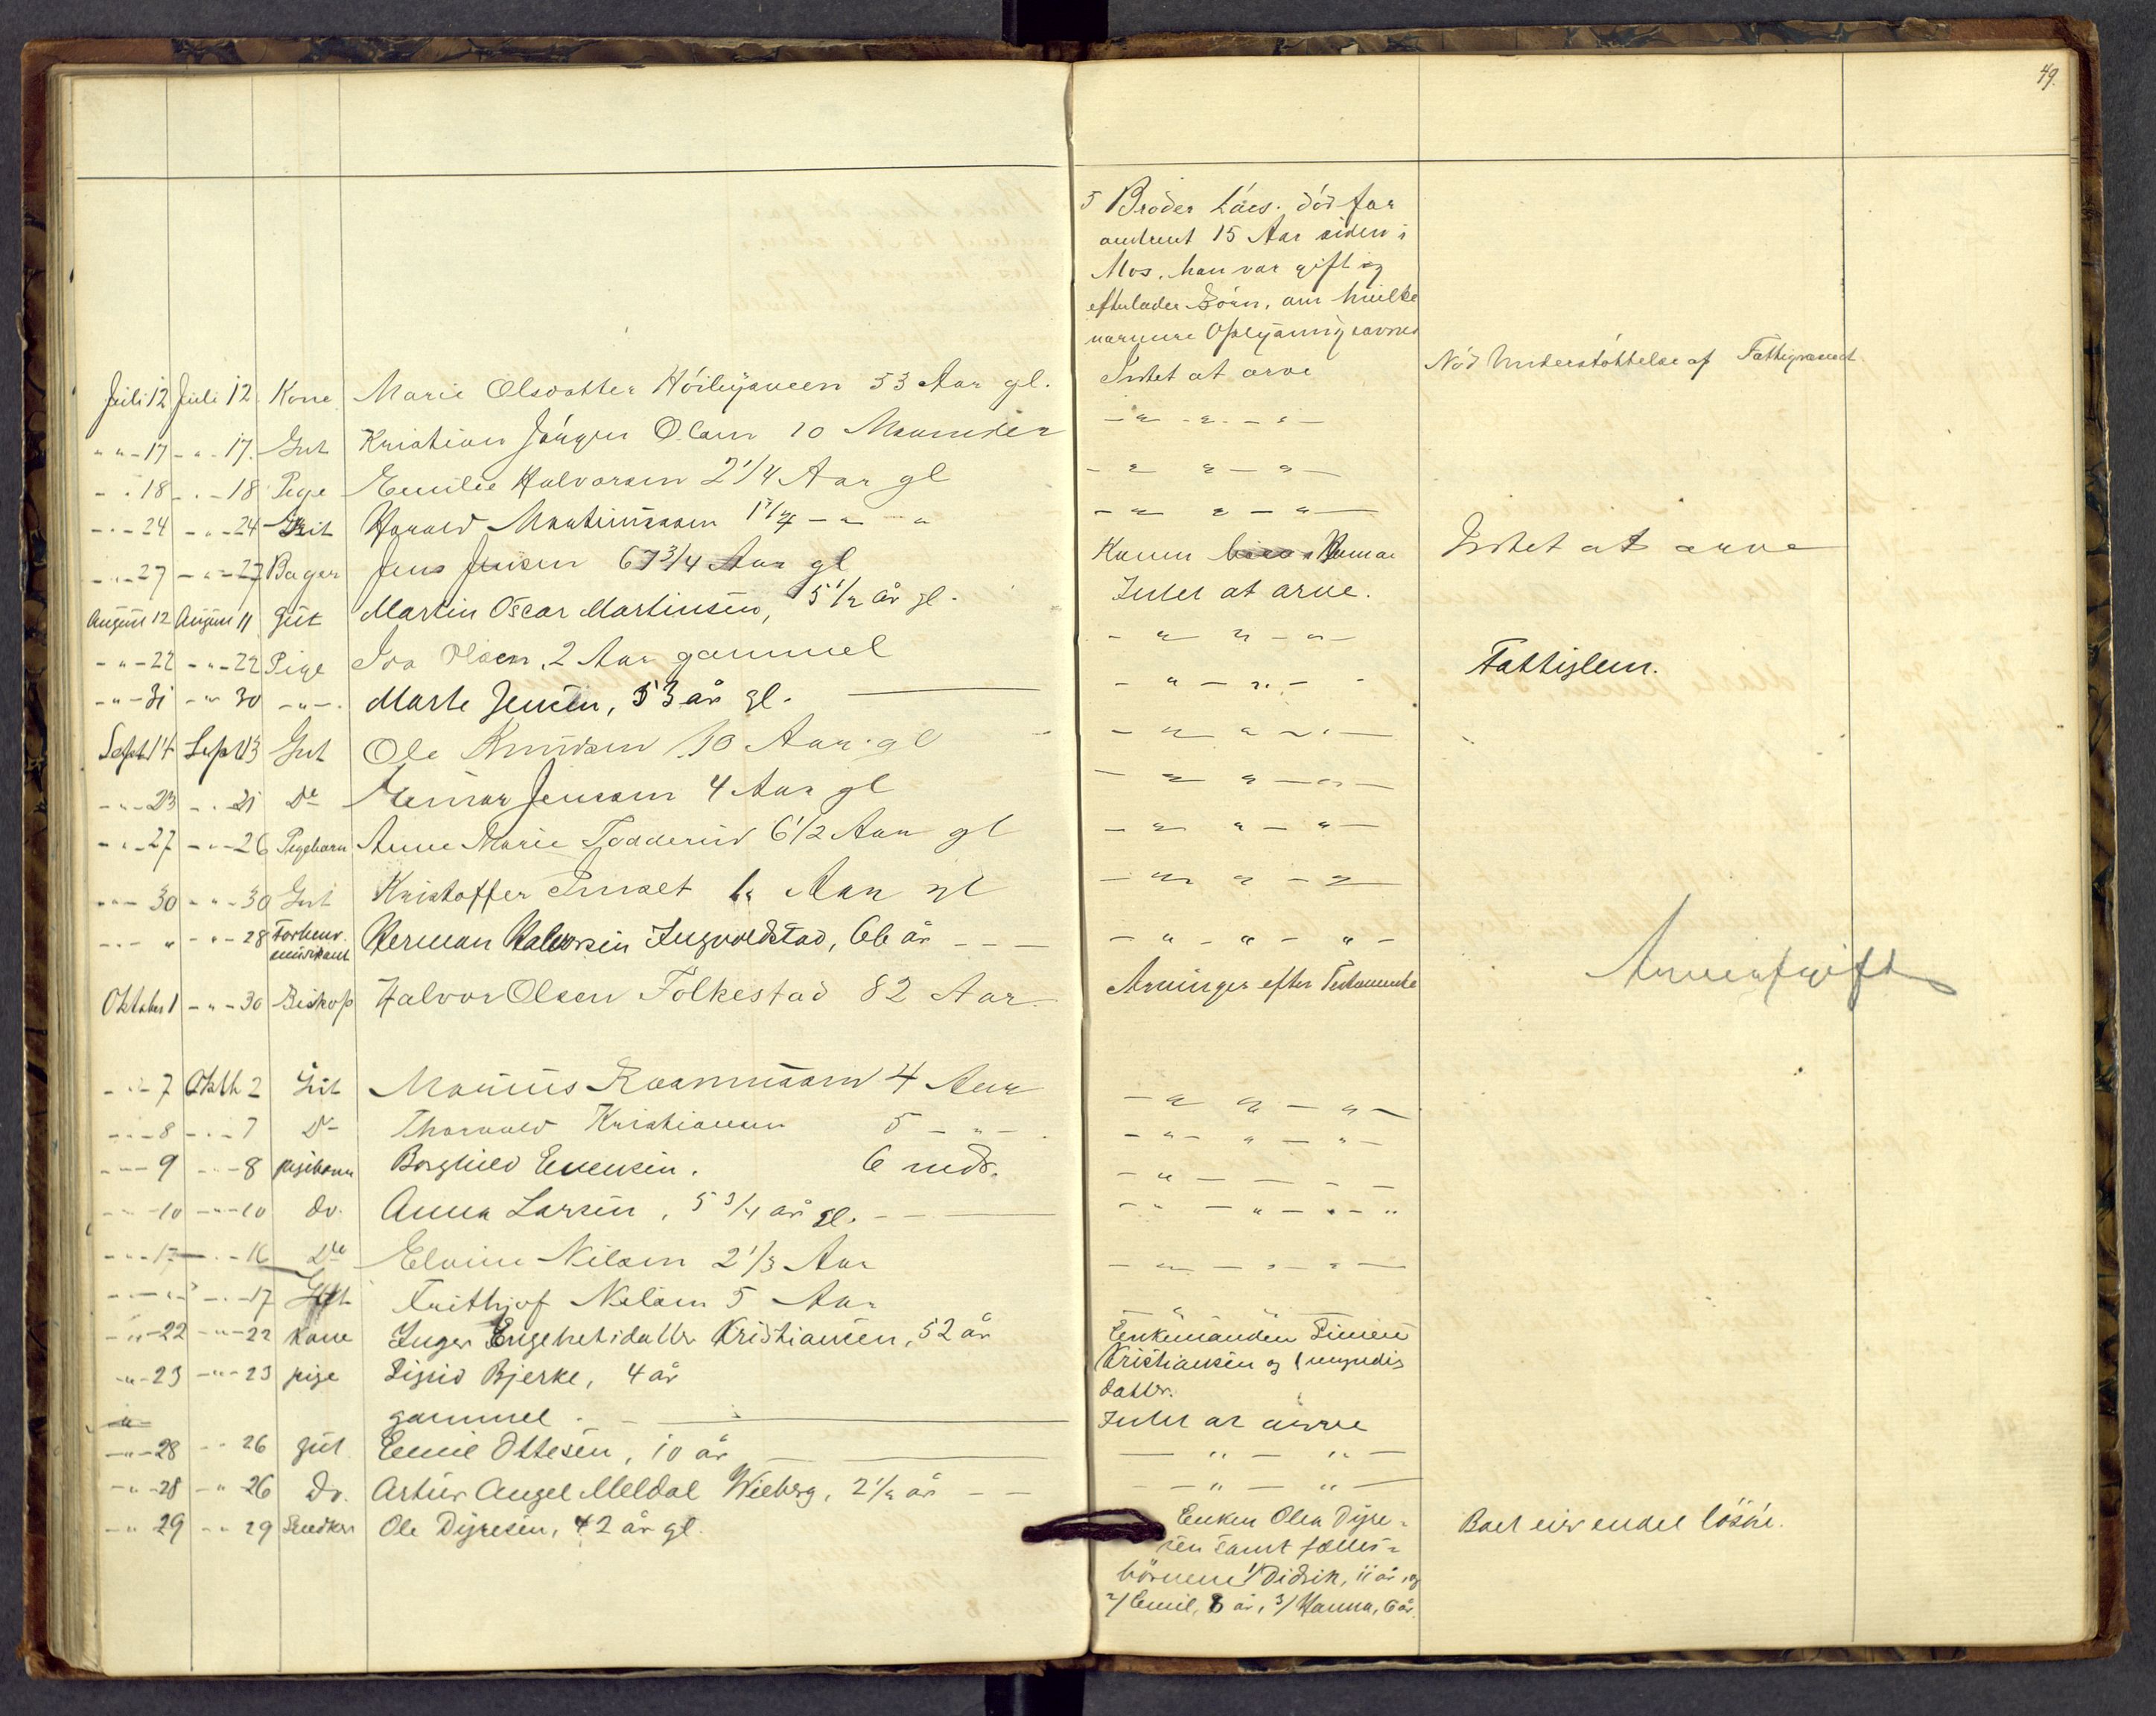 49.
5 Broder Lács. död for
omtrent 15 Aar siden i
Mos, han var gift og
efterlader Börn, om hvilke
nærmere Oplysning savnes
Juli 12 Juli 12 Kone Marie Olsdatter 53 Aar gl. Intet at arve Nöd Understöttelse af Fattigvæsenet
" " - 17 - " - 17. Gut Kristian Jörgen Olsen 10 Maaneder - " - " - " -
- " 18 - " - 18 Pige Emilie Halvorsen 2 1/4 Aar gl - " " - " -
- " - 24 - " - 24 Gut Harald Martinsen - " " - " " - " -
- " - 27 - " - 27 Bager Jens Jensen 67 3/4 Aar gl Konen Intet at arve
August 12 August 11 gut Martin Oscar Martinsen, 5 1/2 år gl. Intet at arve.
- " - 22 - " - 22 Pige Iva Olsen, 2 Aar gammel - " " - " -
- " - 31 - " 30 - " - Marte Jensen, 53 år gl. - " - " - - Fattiglem.
Sept 14 Sept 13 Gut Ole Knudsen 10 Aar gl - " " - " -
- " - 23 - " 21 Do Einar Jensen 4 Aar gl - " " - " -
- " - 27 - " - 26 Pigebarn Anne Marie 6 1/2 Aar gl - " " - " -
- " - 30 - " - 30 Gut Kristoffer Aar gl - " " - " -
- " - " - " - 28 Forhenv. Herman Halvorsen Ingvoldstad, 66 år - - - - " - " - " -
Oktober 1 - " - 30 Biskop Halvor Olsen Folkestad 82 Aar Arvinger efter Testamente Arveafgift
- " - 7 Oktb 2 Gut Marius Rasmussen 4 Aar - " " - " -
- " - 8 - " - 7 Do Thorvald Kristiansen 5 - " - - " - " - " -
- " - 9 - " - 8 pigebarn Borghild Evensen. 6 mdr. - " - - - -
- " - 10 - " - 10 do. Anna Larsen, 5 3/4 år gl. - " - " - " - "
- " - 17 - " - 16 Do Elvine Nilsen 2 1/3 Aar - " - " - " -
- " - " - " - 17 Gut Frithjof Nilsen 5 Aar - " - " - " -
- " - 22 - " - 22 kone Inger Engebretsdatter Kristiansen, 52 år Enkemanden Simen
- " - 23 - " - 23 pige Sigrid Bjerke, 4 år Kristiansen og 1 myndig
datter.
gammel. Intet at arve
- " - 28 - " 26 gut Emil Ottesen, 10 år - " - " -
- " - 28 - " 26 Do. Artur Angel Meldal Wieberg, 2 1/2 år - - - " - " -
- " 29 - " 29 Snedker Ole Dyresen, 42 år gl. Enken Olea Dyre= Boet eier endel lösöre.
sen samt fælles=
börnene 1/ Didrik, 11 år, og
2/ Emil, 8 år, 3/ Hanna, 6 år.